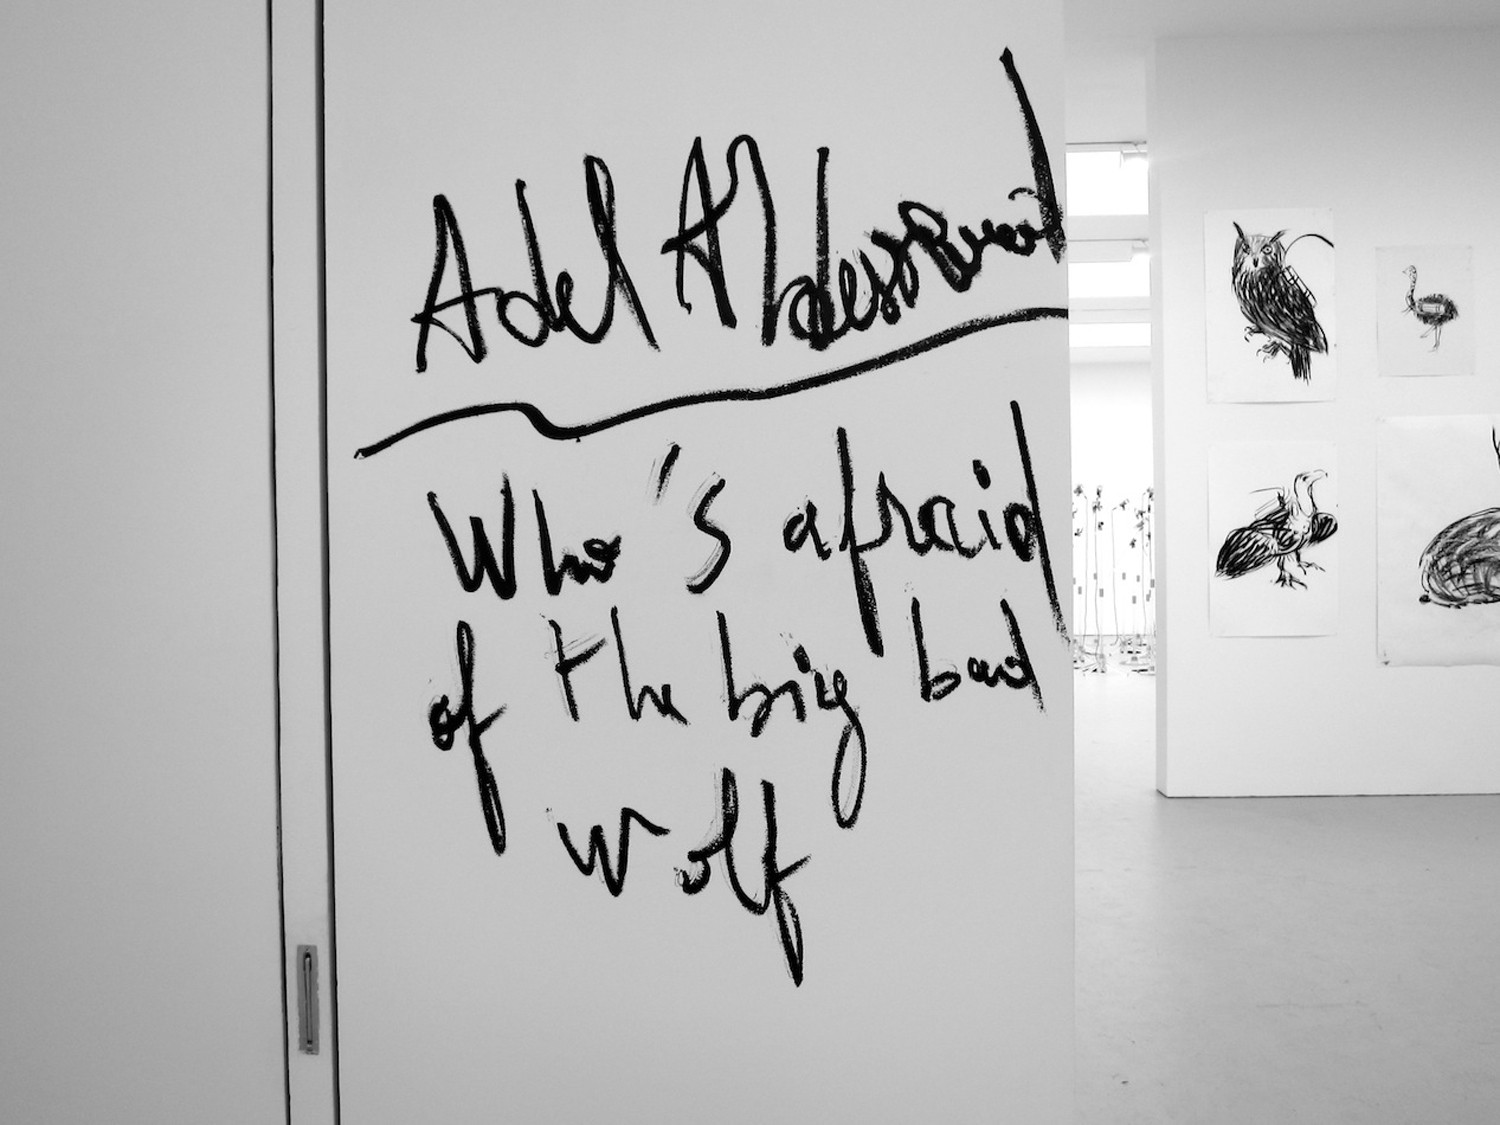 Adel Abdessemed
Who's afraid
of the big bad
wolf